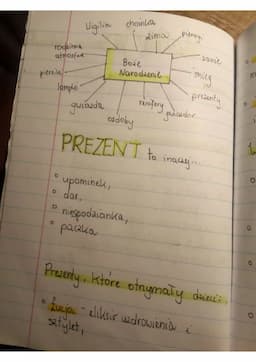 Wigilia
choinka
zima
pierogi
rodzinna
atmosfera
Boże
Narodzenie
sanie
pierniki
miły
prezenty
lampki
gwiazda
renifery
ozdoby
PREZENT to inaczej...
upominek,
dar,
niespodzianka,
paczka
Prezenty, które otrzymały dzieci:
Łucja - eliksir uzdrowienia i
sztylet,